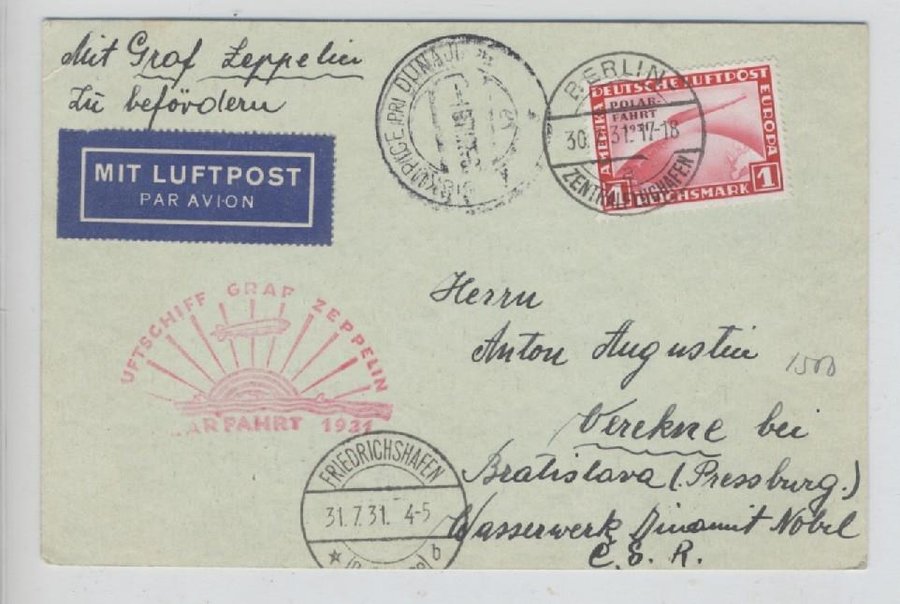 Mit Graf Zeppelin
zu befördern
MIT LUFTPOST
PAR AVION
DUNAJI
BERLIN
30. 31.17-18
ZENTRALFLUGHAFEN
DEUTSCHE LUFTPOST
AMERIKA
EUROPA
POLAR-
FAHRT
1931
1 REICHSMARK 1
UFTSCHIFF GRAF ZEPPELIN
ARFAHRT 1931
Herrn
Anton Augustin
Verekne bei
Bratislava (Pressburg.)
Wasserwerk Dinamit Nobel
C. S. R.
1500
FRIEDRICHSHAFEN
31.7.31. 4-5
b